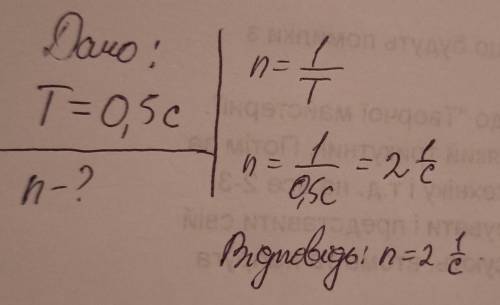 Дано:
T = 0,5c
n - ?
n = 1/T
n = 1/0,5c = 2 1/c
Відповідь: n = 2 1/c